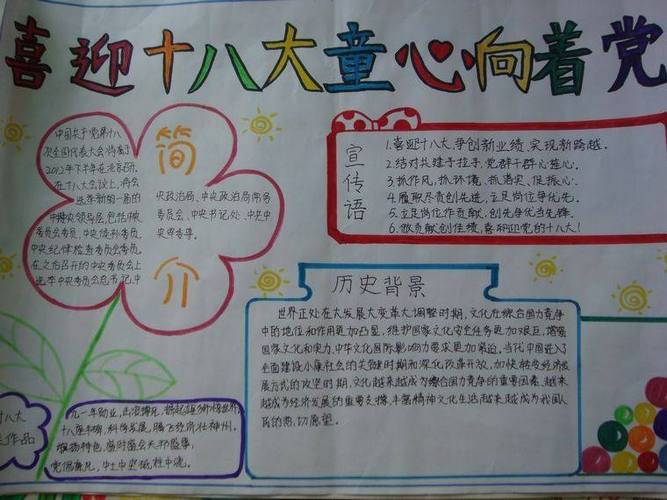 喜迎十八大童心向着党
简介
中国共产党第十八
次全国代表大会将于
2012年下半年在北京召开.
在十八大会议上,将会
选举新的一届的
中央领导层,包括中央
委员会、中央候补委员、
中央纪律检查委员会委员.
在之后召开的中央委员会上
选举中央委员会总书记,中
央政治局、中央政治局常务
委员会、中央书记处、中共中
央军委等。
宣传语
1.喜迎十八大,争创新业绩,实现新跨越。
2.结对共建手拉手,党群干群心连心。
3.抓作风、抓环境、抓落实、促振心。
4.履职尽责创先进,立足岗位争优先。
5.立足岗位作贡献,创先争优当先锋。
6.做贡献创佳绩,喜迎党的十八大!
历史背景
世界正处在大发展大变革大调整时期,文化在综合国力竞争
中的地位和作用更加凸显,维护国家文化安全任务更加艰巨,增强
国家文化软实力、中华文化国际影响力要求更加紧迫。当代中国进入了
全面建设小康社会的关键时期和深化改革开放、加快转变经济发
展方式的攻坚时期,文化越来越成为综合国力竞争的重要因素、越来
越成为经济发展的重要支撑,丰富精神文化生活越来越成为我国人
民的热切愿望。
十八大
作品
九一年勋业,
十八届丰碑,科学发展,腾飞经济壮神州。
特色,盛时盛会天邦盛事,
党倡廉洁,中土中坚砥柱中流。